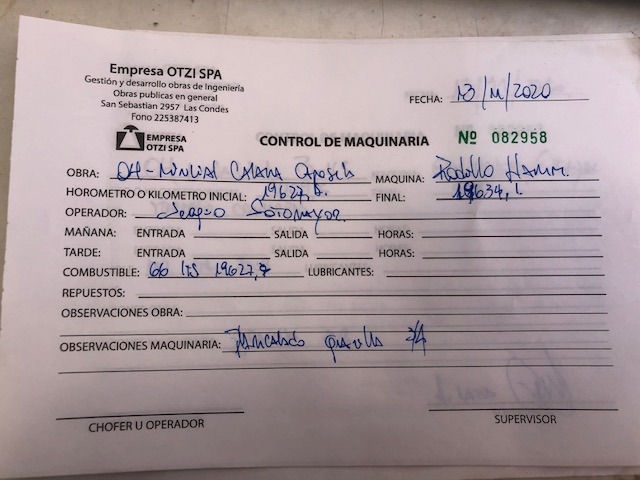 Empresa OTZI SPA
Gestión y desarrollo obras de Ingeniería
Obras publicas en general
San Sebastian 2957 Las Condes
Fono 225387413
FECHA: 13/11/2020
EMPRESA
OTZI SPA
CONTROL DE MAQUINARIA Nº 082958
OBRA: MAQUINA: Rodillo Hamm.
HOROMETRO O KILOMETRO INICIAL: 19627,8 FINAL: 19634,1
OPERADOR: Sotomayor.
MAÑANA: ENTRADA SALIDA HORAS:
TARDE: ENTRADA SALIDA HORAS:
COMBUSTIBLE: 66 lts LUBRICANTES:
REPUESTOS:
OBSERVACIONES OBRA:
OBSERVACIONES MAQUINARIA:
CHOFER U OPERADOR
SUPERVISOR